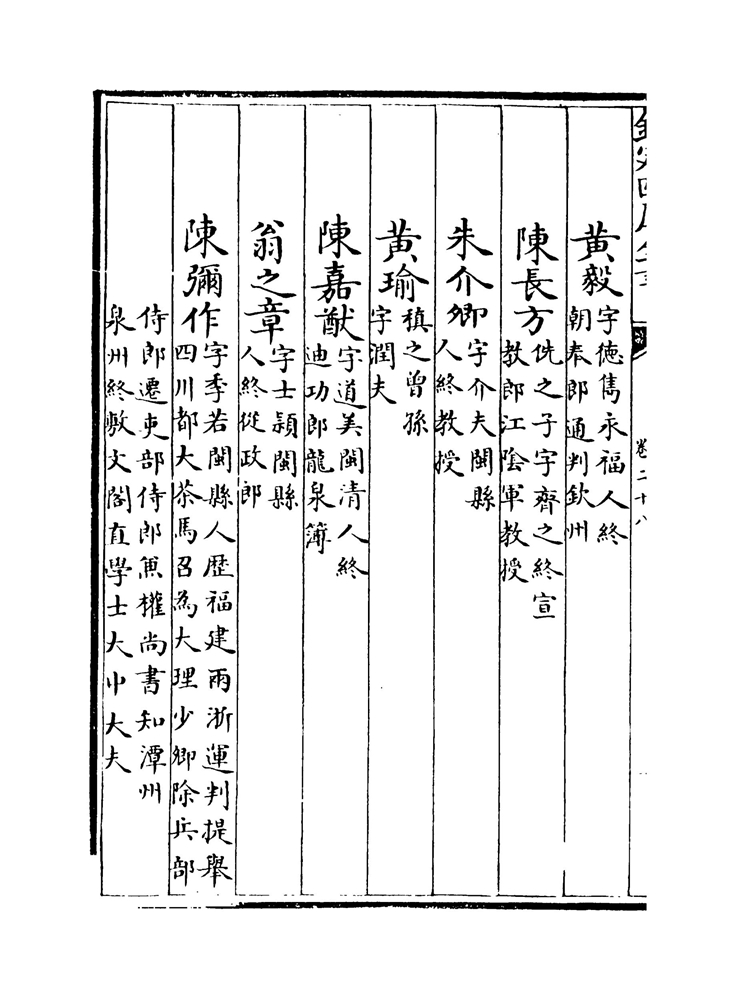 欽定四庫全書
卷二十八
黄毅字徳雋永福人終
朝奉郎通判欽州
陳長方侁之子字齊之終宣
教郎江隂軍教授
朱介卿字介夫閩縣
人終教授
黄瑜稹之曾孫
字潤夫
陳嘉猷字道美閩清人終
迪功郎龍泉簿
翁之章字士頴閩縣
人終從政郎
陳彌作字季若閩縣人歴福建兩浙運判提舉
四川都大茶馬召為大理少卿除兵部
侍郎遷吏部侍郎兼權尚書知潭州
泉州終敷文閣直學士大中大夫